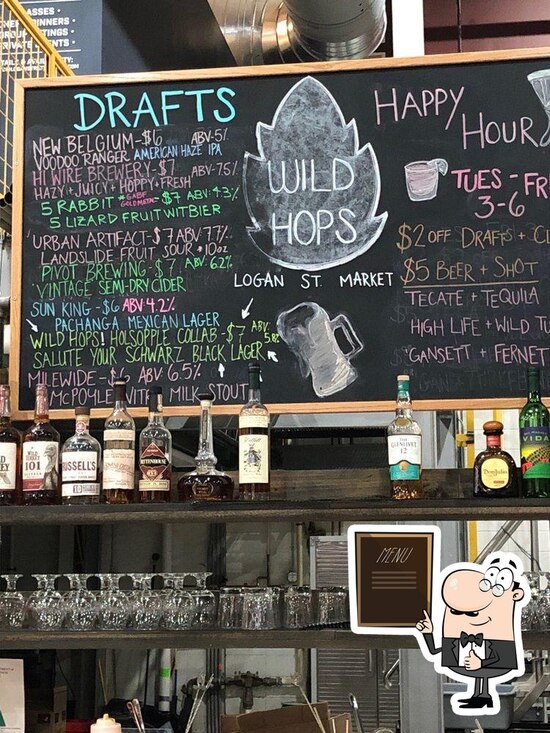 DRAFTS
NEW BELGIUM-$6 ABV-5%
VOODOO RANGER AMERICAN HAZE IPA
HI WIRE BREWERY-$7 ABV-7.5%
HAZY+JUICY+HOPPY+FRESH
5 RABBIT *GABF GOLD METAL* $7 ABV:4.3%
5 LIZARD FRUIT WITBIER
URBAN ARTIFACT-$7 ABV 7.7%
LANDSLIDE FRUIT SOUR *10oz
PIVOT BREWING-$7 ABV: 6.2%
VINTAGE SEMI-DRY CIDER
SUN KING-$6 ABV 4.2%
PACHANGA MEXICAN LAGER
WILD HOPS! HOLSOPPLE COLLAB-$7 ABV: 5.8%
SALUTE YOUR SCHWARZ BLACK LAGER
MILEWIDE-$6 ABV 6.5%
MCPOYLE VIT D MILK STOUT
WILD
HOPS
LOGAN ST. MARKET
HAPPY
HOUR
TUES - FR
3-6
$2 OFF DRAFTS +
$5 BEER + SHOT
TECATE + TEQUILA
HIGH LIFE + WILD TU
'GANSETT + FERNET
101
RUSSELL'S
RITTENHOUSE
12
VIDA
MENU